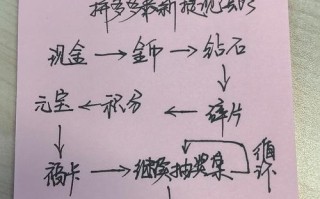 拼多多最新提现套路
现金→金币→钻石
元宝←积分←碎片
福卡→继续抽奖集 循环